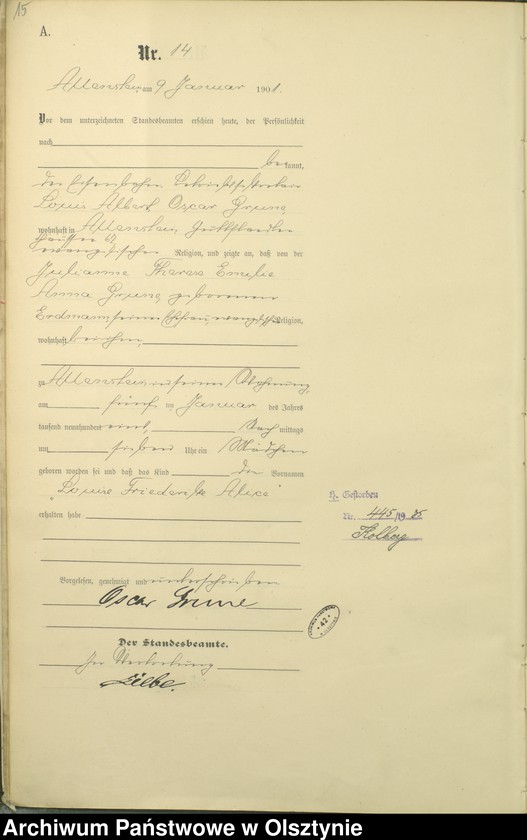 15
A.
Nr. 14
Allenstein am 9 Januar 1901.
Vor dem unterzeichneten Standesbeamten erschien heute, der Persönlichkeit
nach
bekannt,
der Eisenbahn
Louis Albert Oscar Grune
wohnhaft in Allenstein, Guttstädter
evangelischer Religion, und zeigte an, daß von der
Julianne Therese Emilie
Anna Grune geborenen
Erdmann, seiner Ehefrau, evangelischer Religion,
wohnhaft bei ihm,
zu Allenstein in seiner Wohnung,
am fünf ten Januar des Jahres
tausend neunhundert eins, Nach mittags
um sieben Uhr ein Mädchen
geboren worden sei und daß das Kind die Vornamen
"Louise Friederike Alice"
erhalten habe
H. Gestorben
Nr. 445/19
Kolberg
Vorgelesen, genehmigt und unterschrieben
Oscar Grune
Der Standesbeamte.
In Vertretung
42
Archiwum Państwowe w Olsztynie